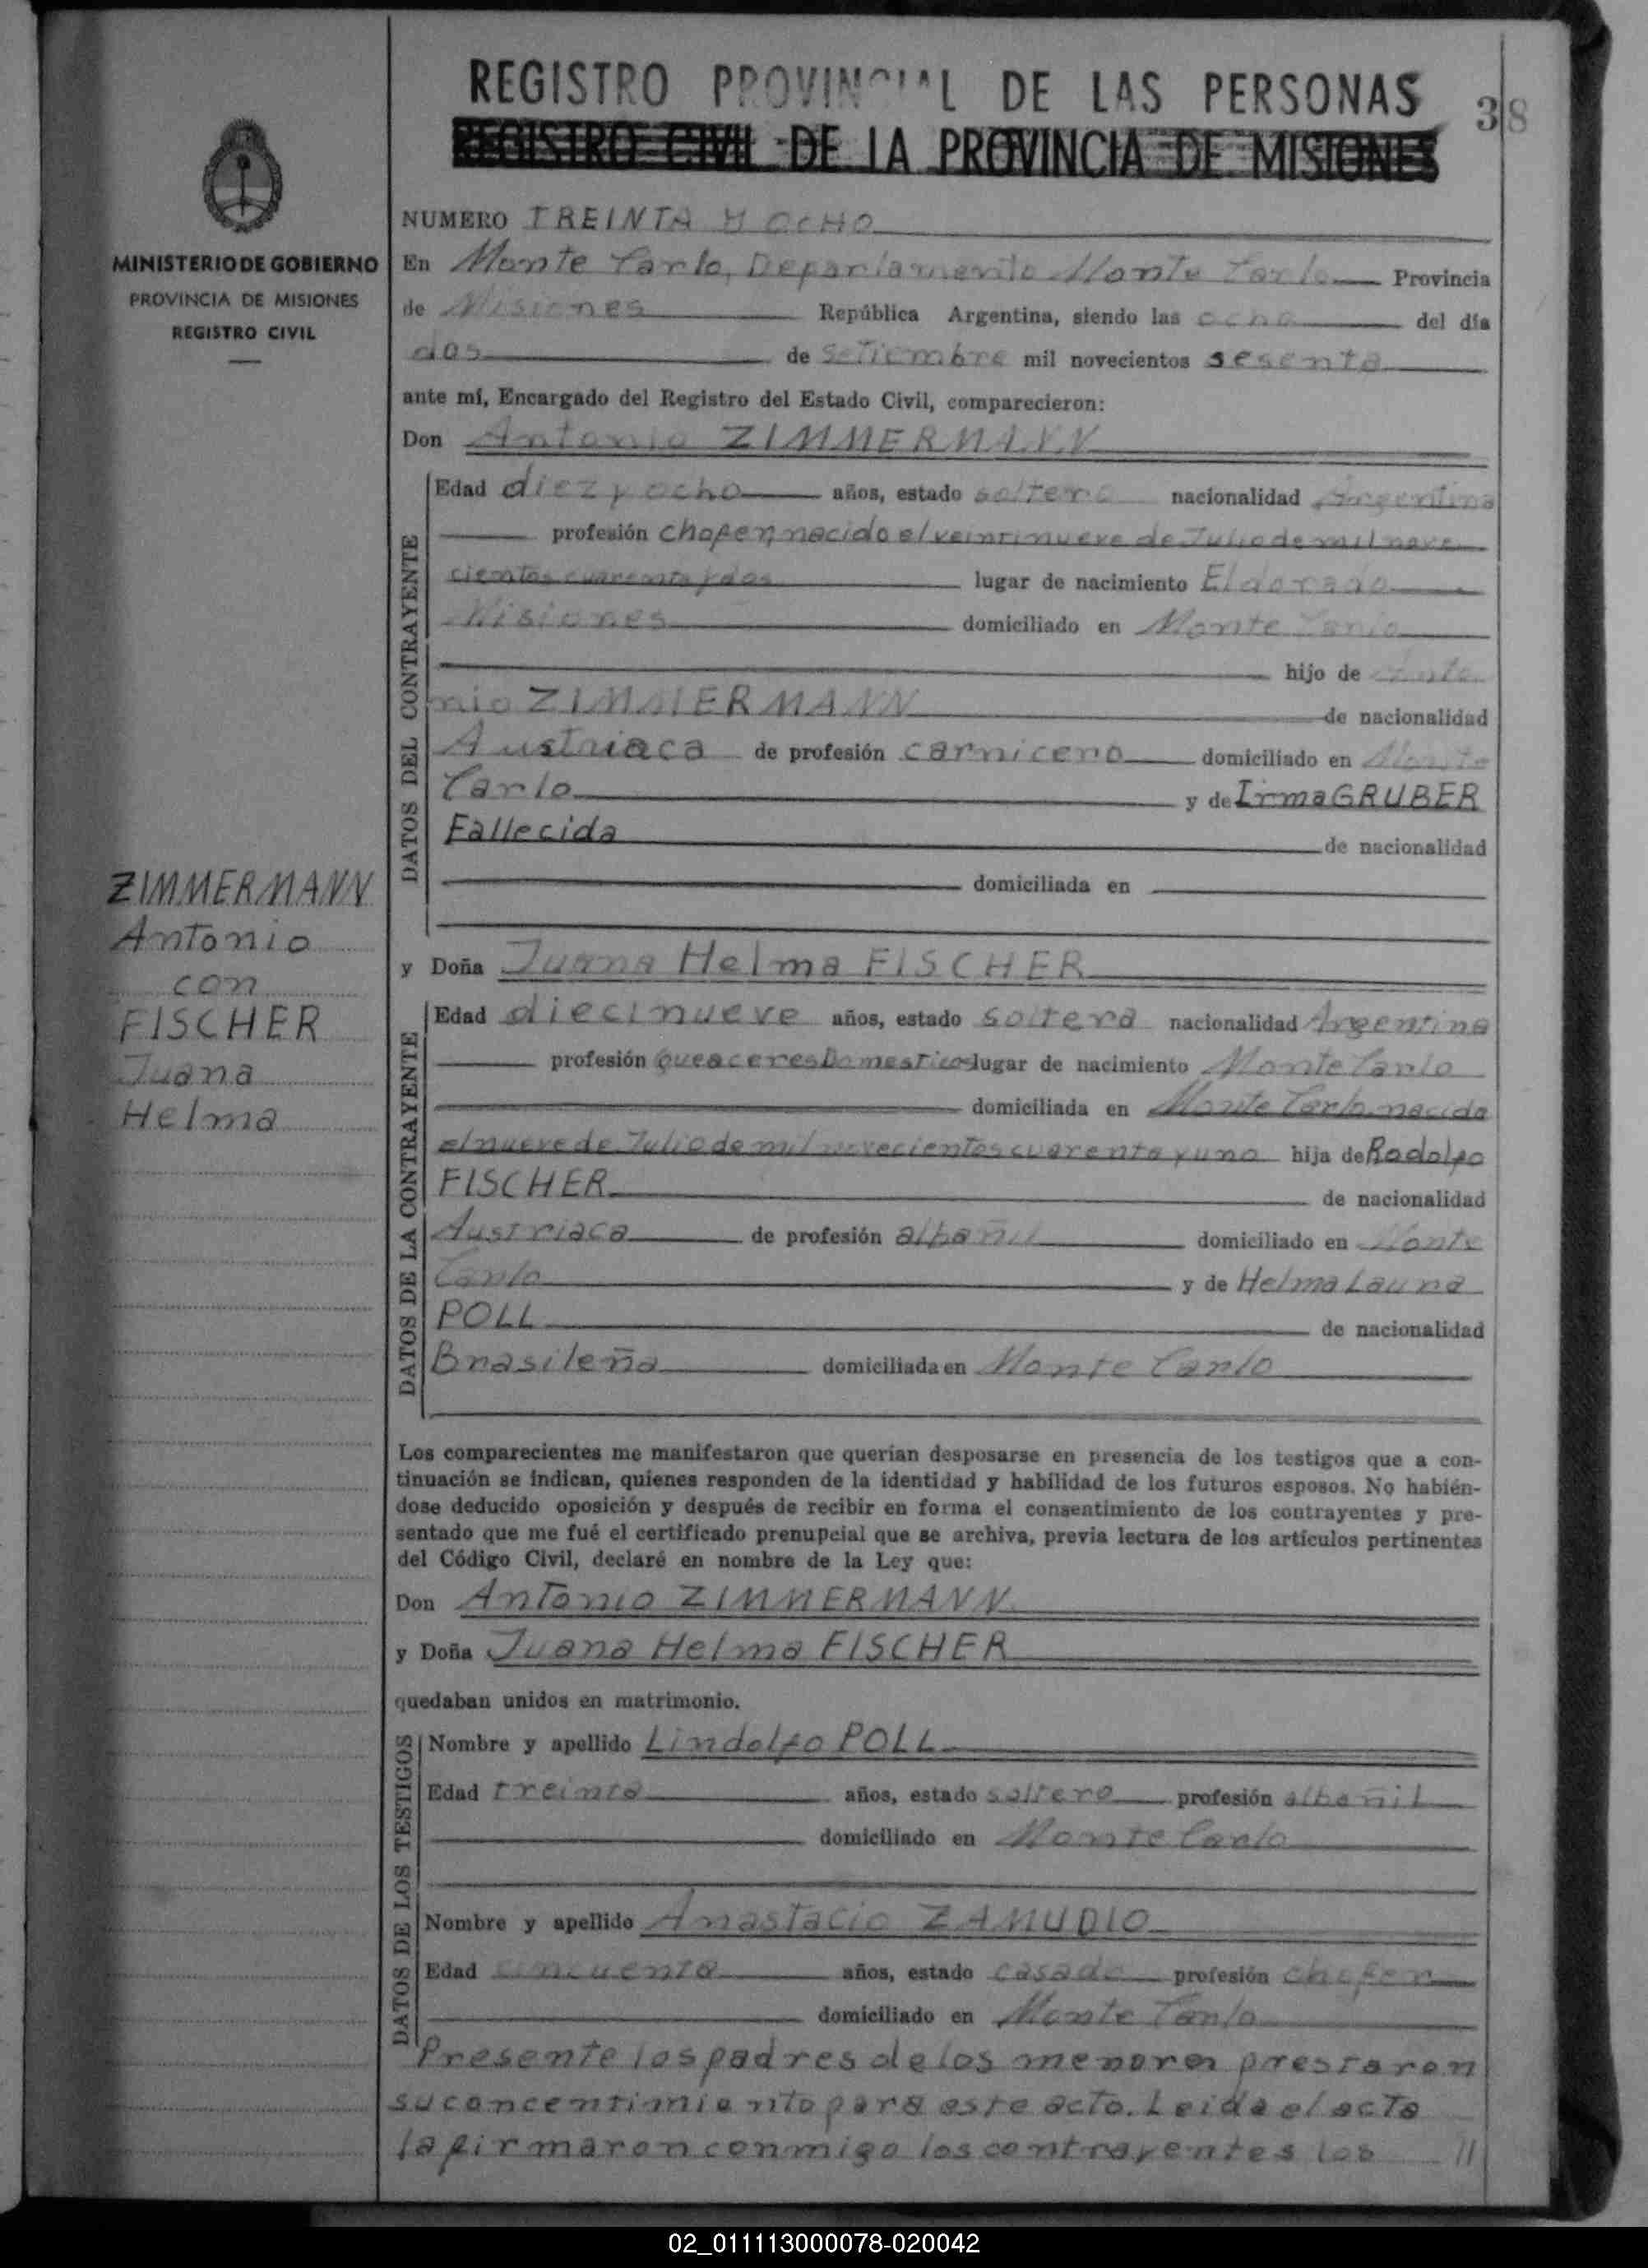 REGISTRO PROVINCIAL DE LAS PERSONAS
38
REGISTRO CIVIL DE LA PROVINCIA DE MISIONES
MINISTERIO DE GOBIERNO
PROVINCIA DE MISIONES
REGISTRO CIVIL
ZIMMERMANN
Antonio
con
FISCHER
Juana
Helma
NUMERO TREINTA Y OCHO
En Monte Carlo, Departamento Monte Carlo Provincia
de Misiones República Argentina, siendo las ocho del día
dos de Setiembre mil novecientos sesenta
ante mí, Encargado del Registro del Estado Civil, comparecieron:
Don Antonio ZIMMERMANN
DATOS DEL CONTRAYENTE
Edad diez y ocho años, estado soltero nacionalidad Argentina
profesión chofer, nacido el veintinueve de Julio de mil nove
cientos cuarenta y dos lugar de nacimiento Eldorado
Misiones domiciliado en Monte Carlo
hijo de Anto
nio ZIMMERMANN de nacionalidad
Austriaca de profesión carnicero domiciliado en Monte
Carlo y de Irma GRUBER
Fallecida de nacionalidad
domiciliada en
y Doña Juana Helma FISCHER
DATOS DE LA CONTRAYENTE
Edad diecinueve años, estado soltera nacionalidad Argentina
profesión Queaceres Domesticos lugar de nacimiento Monte Carlo
domiciliada en Monte Carlo nacida
el nueve de Julio de mil novecientos cuarenta y uno hija de Rodolfo
FISCHER de nacionalidad
Austriaca de profesión albañil domiciliado en Monte
Carlo y de Helma Laura
POLL de nacionalidad
Brasileña domiciliada en Monte Carlo
Los comparecientes me manifestaron que querían desposarse en presencia de los testigos que a con-
tinuación se indican, quienes responden de la identidad y habilidad de los futuros esposos. No habién-
dose deducido oposición y después de recibir en forma el consentimiento de los contrayentes y pre-
sentado que me fué el certificado prenupcial que se archiva, previa lectura de los artículos pertinentes
del Código Civil, declaré en nombre de la Ley que:
Don Antonio ZIMMERMANN
y Doña Juana Helma FISCHER
quedaban unidos en matrimonio.
DATOS DE LOS TESTIGOS
Nombre y apellido Lindolfo POLL
Edad treinta años, estado soltero profesión albañil
domiciliado en Monte Carlo
Nombre y apellido Anastacio ZAMUDIO
Edad cincuenta años, estado casado profesión chofer
domiciliado en Monte Carlo
Presente los padres de los menores prestaron
su concentimiento para este acto. Leida el acta
la firmaron conmigo los contrayentes los //
02_011113000078-020042